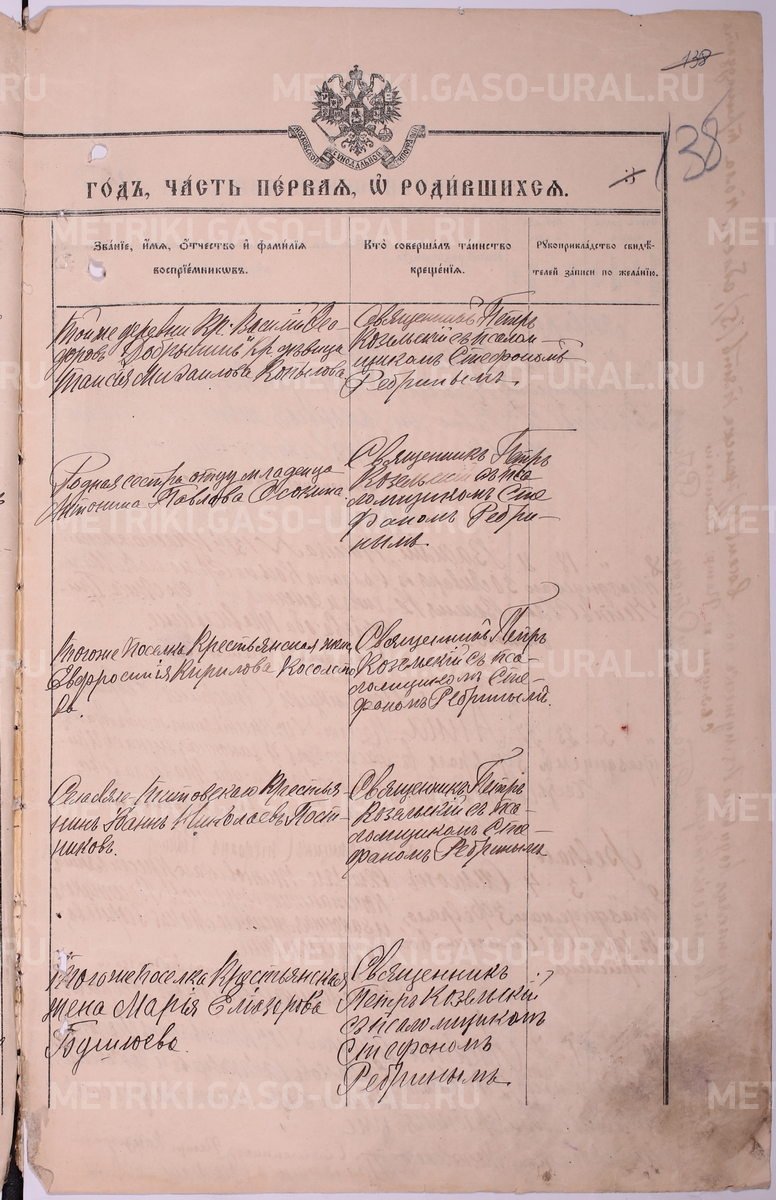 138
138
МОСКОВСКОЙ СѶНОДАЛЬНОЙ ТИПОГРАФІИ
ГО́ДЪ, ЧА́СТЬ ПЕ́РВАЯ, Ѡ҆ РОДИ́ВШИХСѦ.
ЗВА́НІЕ, И҆́МѦ, Ѻ҆́ТЧЕСТВО И҆ ФАМИ́ЛІѦ
ВОСПРІЕ́МНИКѠВЪ.
КТО̀ СОВЕРША́ЛЪ ТА́ИНСТВО
КРЕЩЕ́НІѦ.
РꙊКОПРИКЛА́ДСТВО СВИДѢ́-
ТЕЛЕЙ ЗА́ПИСИ ПО ЖЕЛА́НІЮ.
Той же деревни кр: Василій Ѳео-
доровъ Добрынинъ кр. дѣвица
Таисія Михаилова Копылова
Священникъ Петръ
Козельскій съ псалом-
щикомъ Стефономъ
Ребринымъ.
Родная сестра отцу младенца
Антонина Павлова Осокина.
Священникъ Петръ
Козельскій съ пса-
ломщикомъ Сте-
фаномъ Ребри-
нымъ.
Того же поселка крестьянская жена
Евфросинія Кирилова
Священникъ Петръ
Козельскій съ пса-
ломщикомъ Сте-
фаномъ Ребринымъ.
Титовскаго крестья-
нинъ Іоаннъ Николаевъ Пост-
никовъ.
Священникъ Петръ
Козельскій съ пса-
ломщикомъ Сте-
фаномъ Ребринымъ
Того же поселка Крестьянская
жена Марія Еліазарова
Священникъ
Петръ Козельскій
съ псаломщикомъ
Стефономъ
Ребринымъ.
METRIKI.GASO-URAL.RU